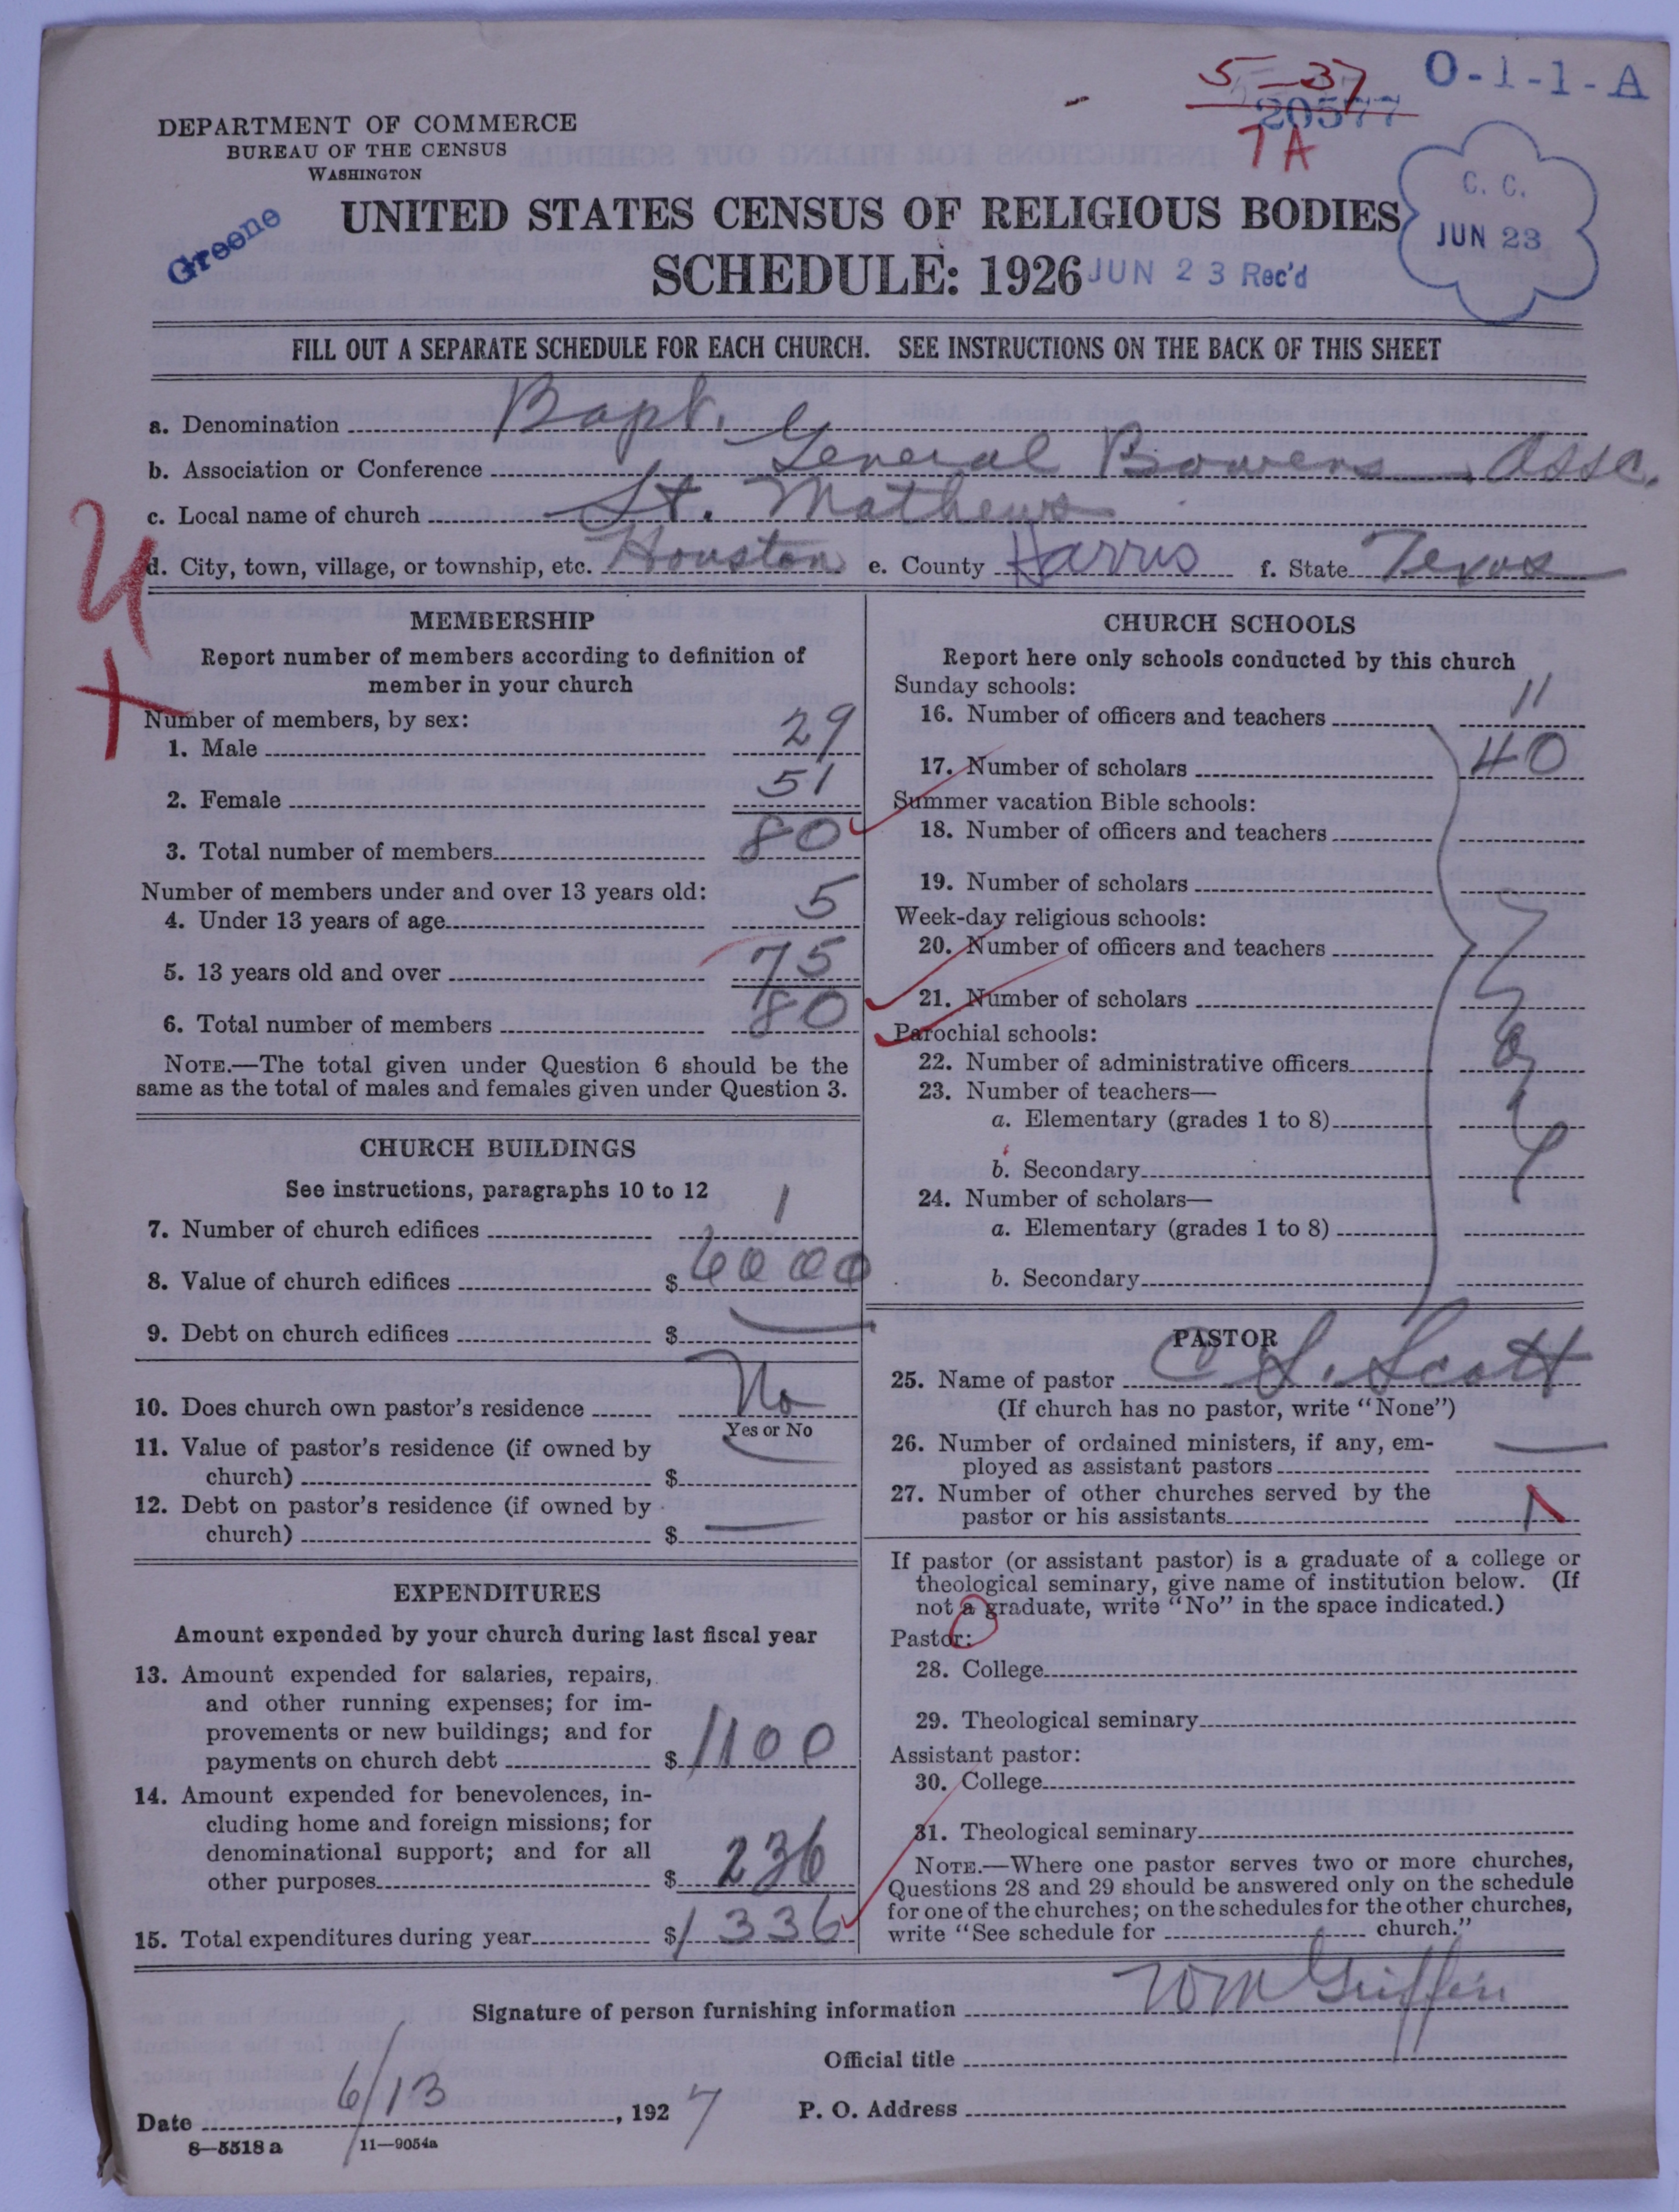 5-37
O-1-1-A
20577
7A
DEPARTMENT OF COMMERCE
BUREAU OF THE CENSUS
WASHINGTON
C. C.
JUN 23
Greene
UNITED STATES CENSUS OF RELIGIOUS BODIES
SCHEDULE: 1926
JUN 23 Rec'd
FILL OUT A SEPARATE SCHEDULE FOR EACH CHURCH. SEE INSTRUCTIONS ON THE BACK OF THIS SHEET
a. Denomination Bapt.
b. Association or Conference General Bowens Assc.
c. Local name of church St. Mathews
d. City, town, village, or township, etc. Houston e. County Harris f. State Texas
MEMBERSHIP
Report number of members according to definition of
member in your church
Number of members, by sex:
1. Male 29
2. Female 51
3. Total number of members 80
Number of members under and over 13 years old:
4. Under 13 years of age 5
5. 13 years old and over 75
6. Total number of members 80
NOTE.—The total given under Question 6 should be the
same as the total of males and females given under Question 3.
CHURCH BUILDINGS
See instructions, paragraphs 10 to 12
7. Number of church edifices 1
8. Value of church edifices $6000
9. Debt on church edifices $
10. Does church own pastor's residence No
Yes or No
11. Value of pastor's residence (if owned by
church) $
12. Debt on pastor's residence (if owned by
church) $
EXPENDITURES
Amount expended by your church during last fiscal year
13. Amount expended for salaries, repairs,
and other running expenses; for im-
provements or new buildings; and for
payments on church debt $1100
14. Amount expended for benevolences, in-
cluding home and foreign missions; for
denominational support; and for all
other purposes $236
15. Total expenditures during year $1336
CHURCH SCHOOLS
Report here only schools conducted by this church
Sunday schools:
16. Number of officers and teachers 11
17. Number of scholars 40
Summer vacation Bible schools:
18. Number of officers and teachers
19. Number of scholars
Week-day religious schools:
20. Number of officers and teachers
21. Number of scholars
Parochial schools:
22. Number of administrative officers
23. Number of teachers—
a. Elementary (grades 1 to 8)
b. Secondary
24. Number of scholars—
a. Elementary (grades 1 to 8)
b. Secondary
PASTOR
25. Name of pastor C S. Scott
(If church has no pastor, write "None")
26. Number of ordained ministers, if any, em-
ployed as assistant pastors
27. Number of other churches served by the
pastor or his assistants 1
If pastor (or assistant pastor) is a graduate of a college or
theological seminary, give name of institution below. (If
not a graduate, write "No" in the space indicated.)
Pastor:
28. College
29. Theological seminary
Assistant pastor:
30. College
31. Theological seminary
NOTE.—Where one pastor serves two or more churches,
Questions 28 and 29 should be answered only on the schedule
for one of the churches; on the schedules for the other churches,
write "See schedule for church."
Signature of person furnishing information Wm Griffen
Official title
Date 6/13, 1927 P. O. Address
8—5518 a 11—9054a